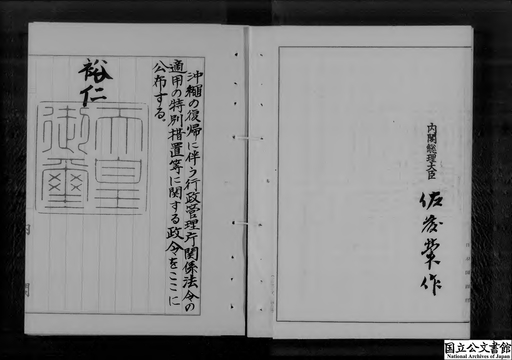 沖縄の復帰に伴う行政管理庁関係法令の
適用の特別措置等に関する政令をここに
公布する。
裕仁
天皇
御璽
内閣総理大臣
佐藤榮作
国立公文書館
National Archives of Japan